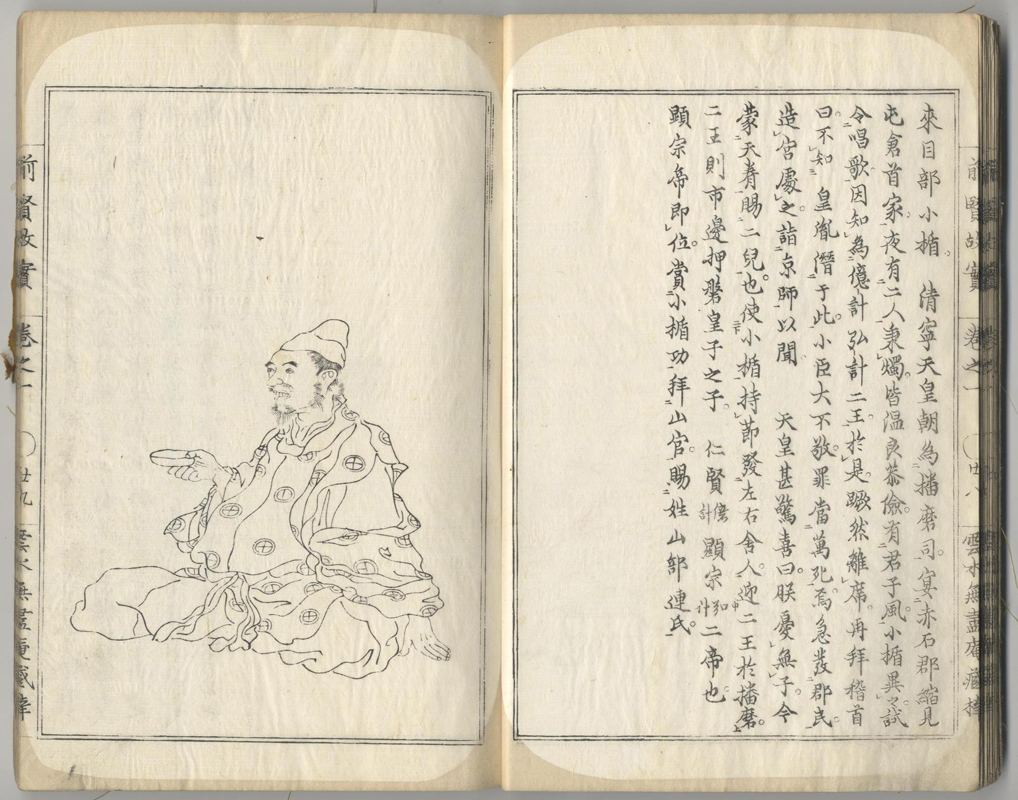 來目部小楯。　清寧天皇朝為播磨司。宴赤石郡縮見
屯倉首家。夜有二人秉燭。皆温良恭儉。有君子風。小楯異之。試
令唱歌。因知為億計弘計二王。於是蹶然離席。再拜稽首
曰。不知　皇胤潛于此。小臣大不敬。罪當萬死。焉急發郡民。
造宮處之。詣京師以聞　天皇甚驚喜曰。朕憂無子。今
蒙天眷賜二兒也。使小楯持節發左右舍人。迎二王於播磨。
二王則市邊押磐皇子之子。　仁賢億計顯宗弘計二帝也。
顯宗帝即位。賞小楯功。拜山官。賜姓山部連氏。
前賢故實　卷之一　〇　廿八　雲水無盡庵藏
前賢故實　卷之一　〇　廿九　雲水無盡庵藏